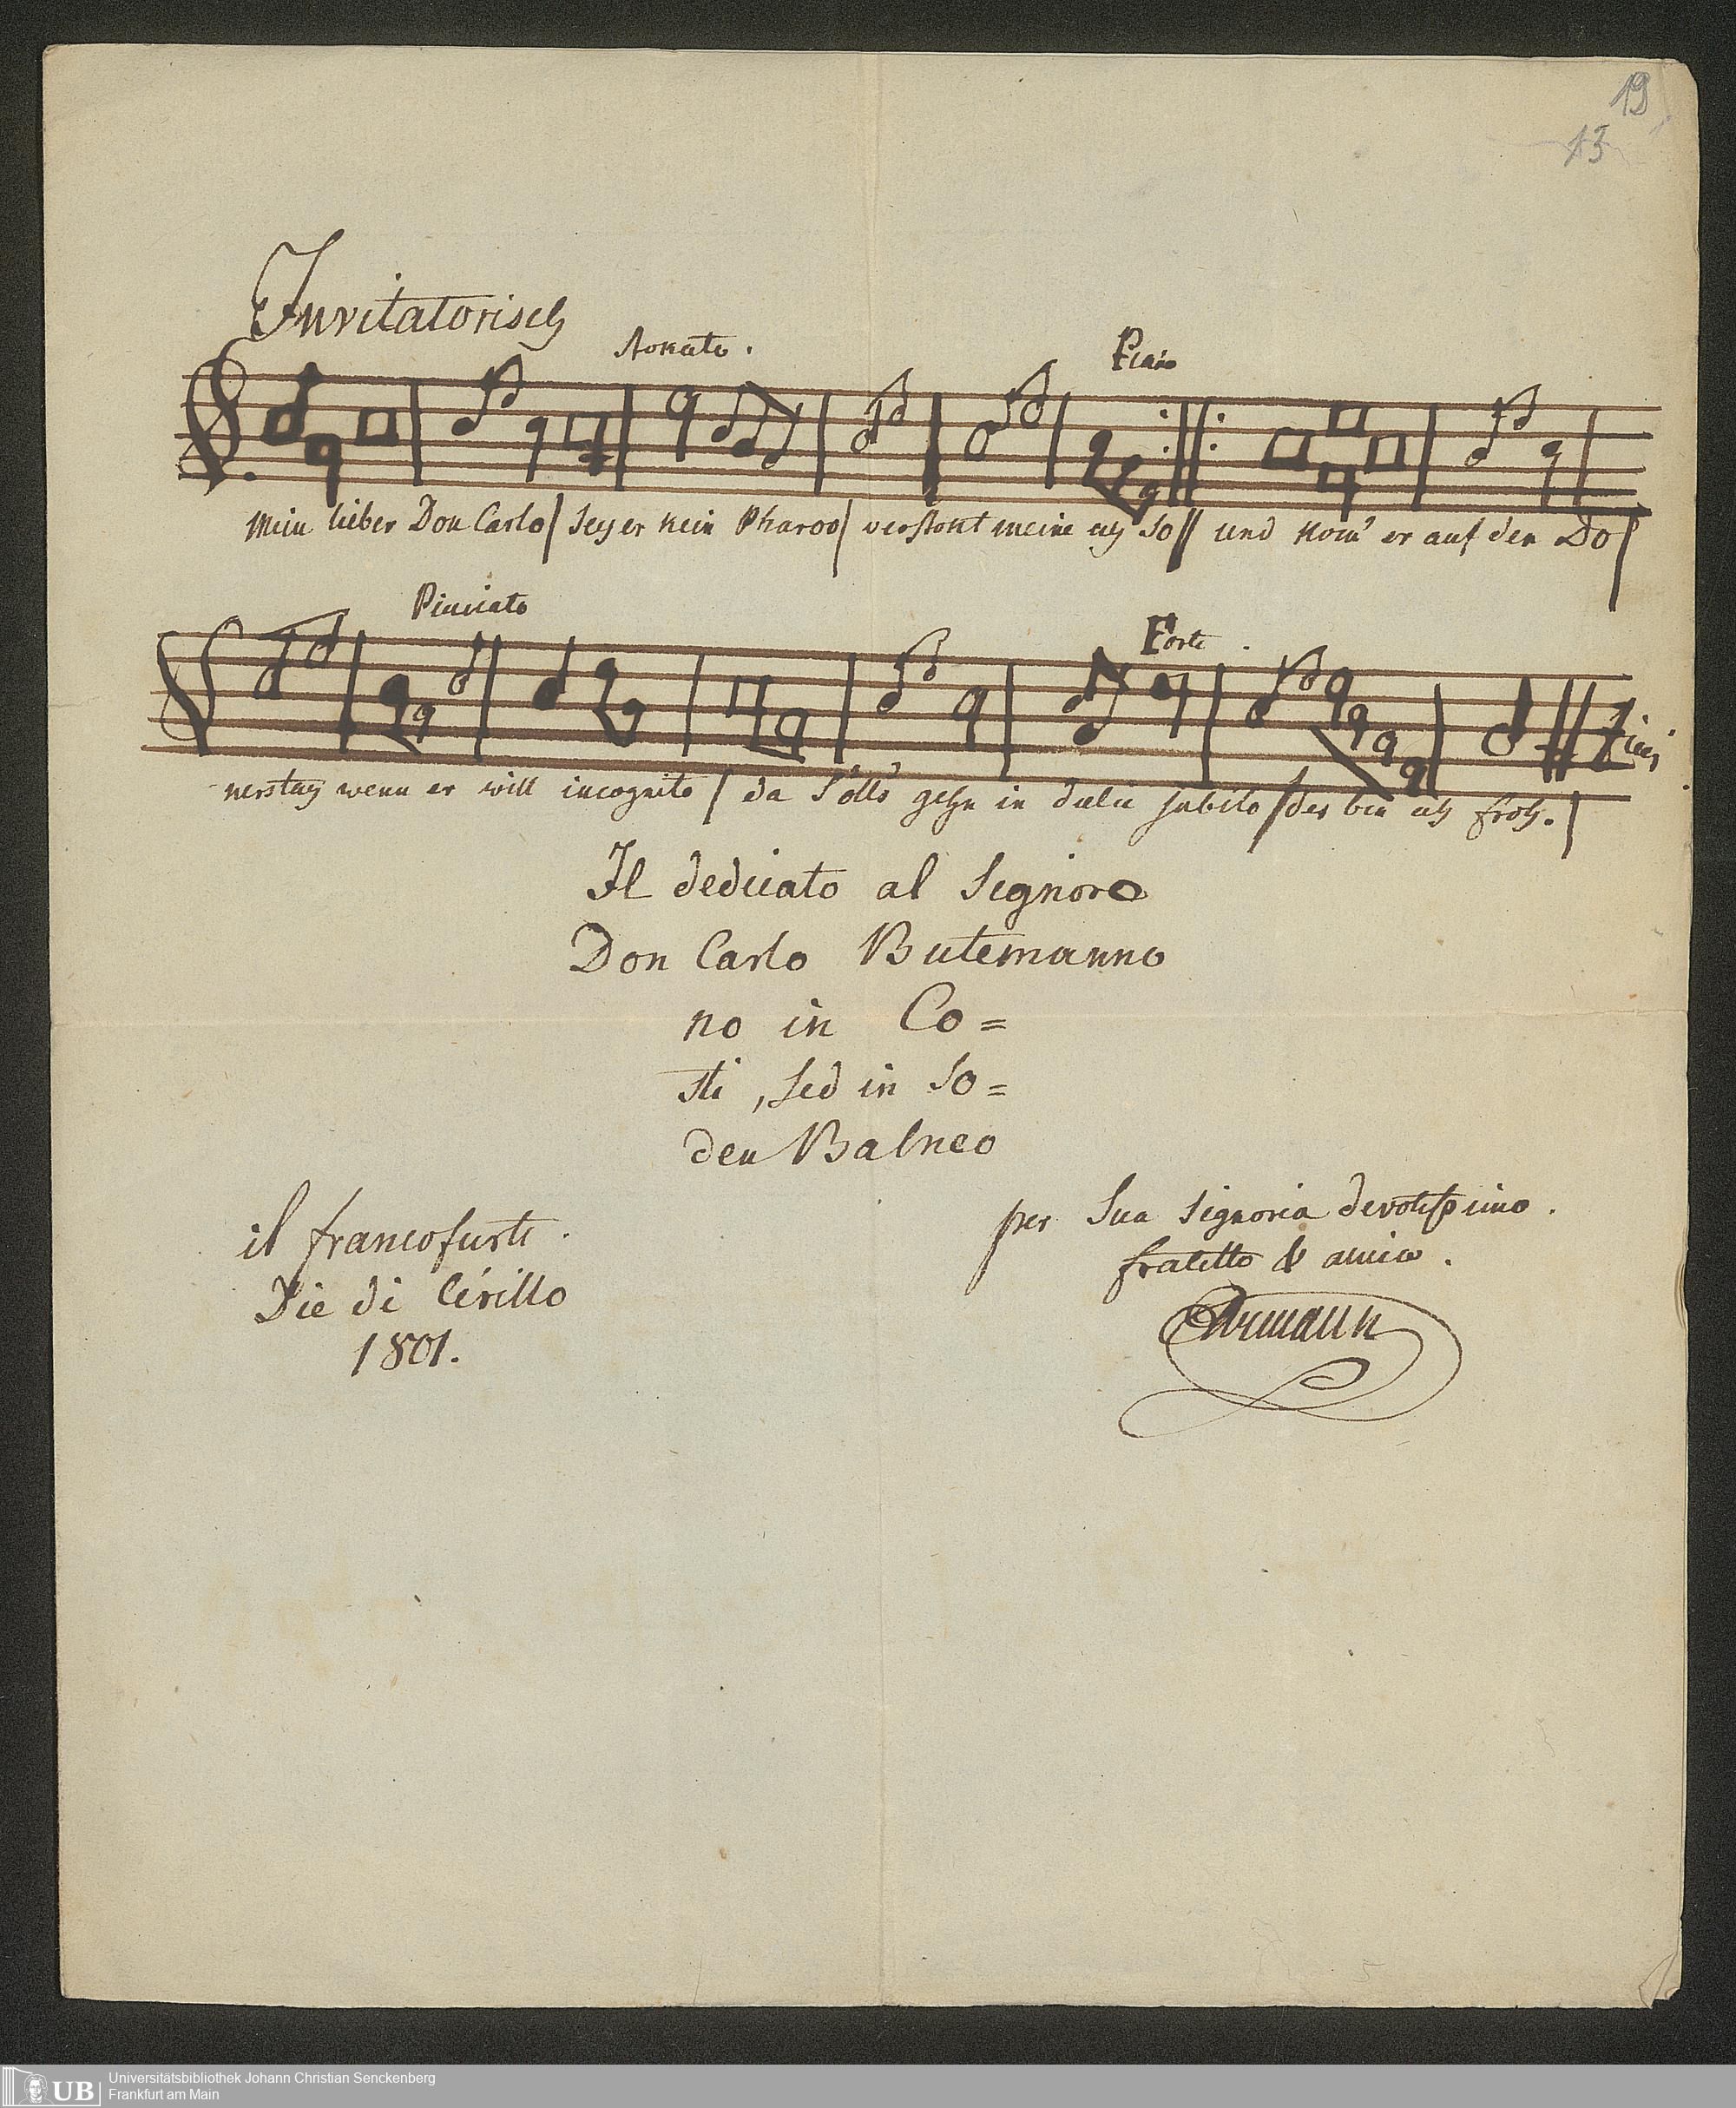 19
13
Invitatorisch
Stokato.
Piano
Mein lieber Don Carlo | sey er kein Pharoo | verstokt meine ich so || und kom' er auf den Do |
Pinciato
Forte.
nerstag wenn er will incognito | da sölls gehn in dulci jubilo | des bin ich froh. |
Finis
Il dedicato al Signoro
Don Carlo Butemanno
no in Co=
sti, sed in So=
den Balneo
il francofurti.
Die di Cirillo
1801.
per Sua Signoria devotissimo.
fratello & amico.
UB
Universitätsbibliothek Johann Christian Senckenberg
Frankfurt am Main